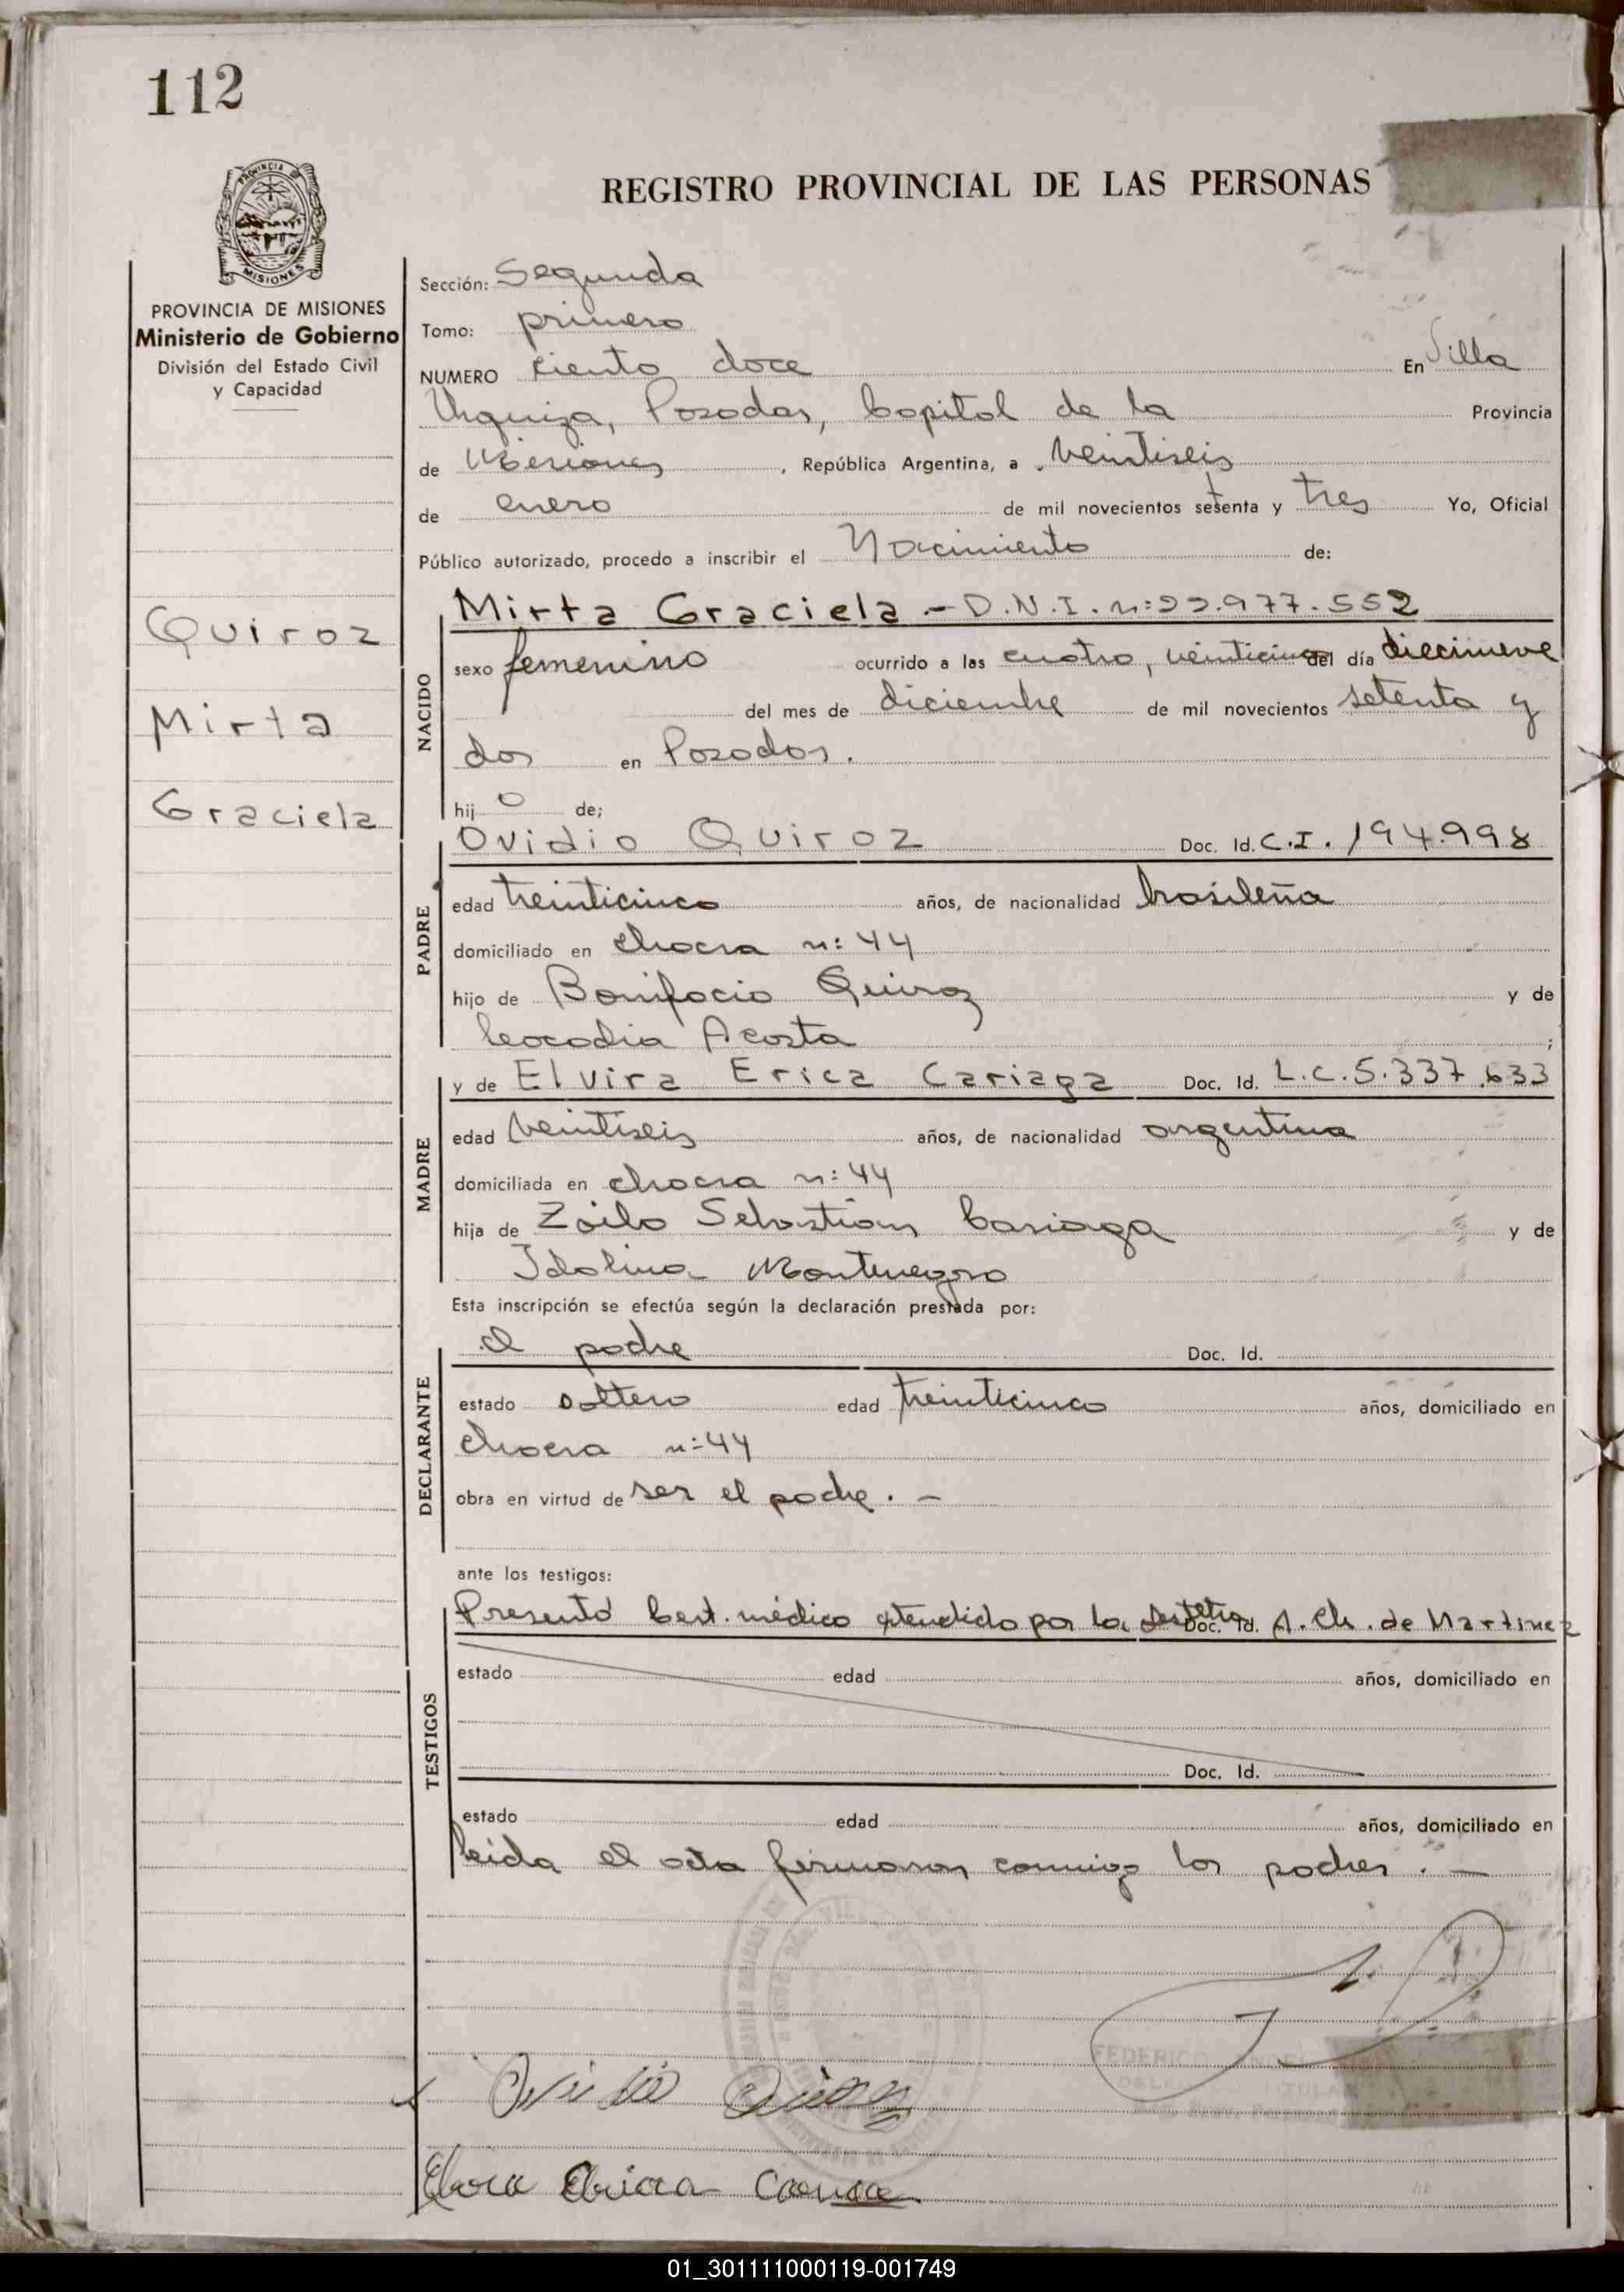 112
PROVINCIA
MISIONES
REGISTRO PROVINCIAL DE LAS PERSONAS
PROVINCIA DE MISIONES
Ministerio de Gobierno
División del Estado Civil
y Capacidad
Quiroz
Mirta
Graciela
Sección: Segunda
Tomo: primero
NUMERO ciento doce En Villa
Urquiza, Posadas, Capital de la Provincia
de Misiones, República Argentina, a veintiseis
de enero de mil novecientos setenta y tres Yo, Oficial
Público autorizado, procedo a inscribir el Nacimiento de:
NACIDO
Mirta Graciela.- D.N.I. n: 22.977.552
sexo femenino ocurrido a las cuatro, veinticinco del día diecinueve
del mes de diciembre de mil novecientos setenta y
dos en Posadas.
hij o de;
PADRE
Ovidio Quiroz Doc. Id. C.I. 194.998
edad treinticinco años, de nacionalidad brasileña
domiciliado en chacra n: 44
hijo de Bonifacio Quiroz y de
Leocadia Acosta ;
MADRE
y de Elvira Erica Cariaga Doc. Id. L.C. 5.337.633
edad veintiseis años, de nacionalidad argentina
domiciliada en chacra n: 44
hija de Zoilo Sebastian Cariaga y de
Idolina Montenegro
Esta inscripción se efectúa según la declaración prestada por:
DECLARANTE
el padre Doc. Id.
estado soltero edad treinticinco años, domiciliado en
chacra n: 44
obra en virtud de ser el padre. -
ante los testigos:
TESTIGOS
Presentó Cert. médico extendido por la Doc. Id. A. Ch. de Martinez
estado edad años, domiciliado en
Doc. Id.
estado edad años, domiciliado en
Leida el acta firmaron conmigo los padres. -
FEDERICO
TITULAR
Ovidio Quiroz
Erica
01_301111000119-001749